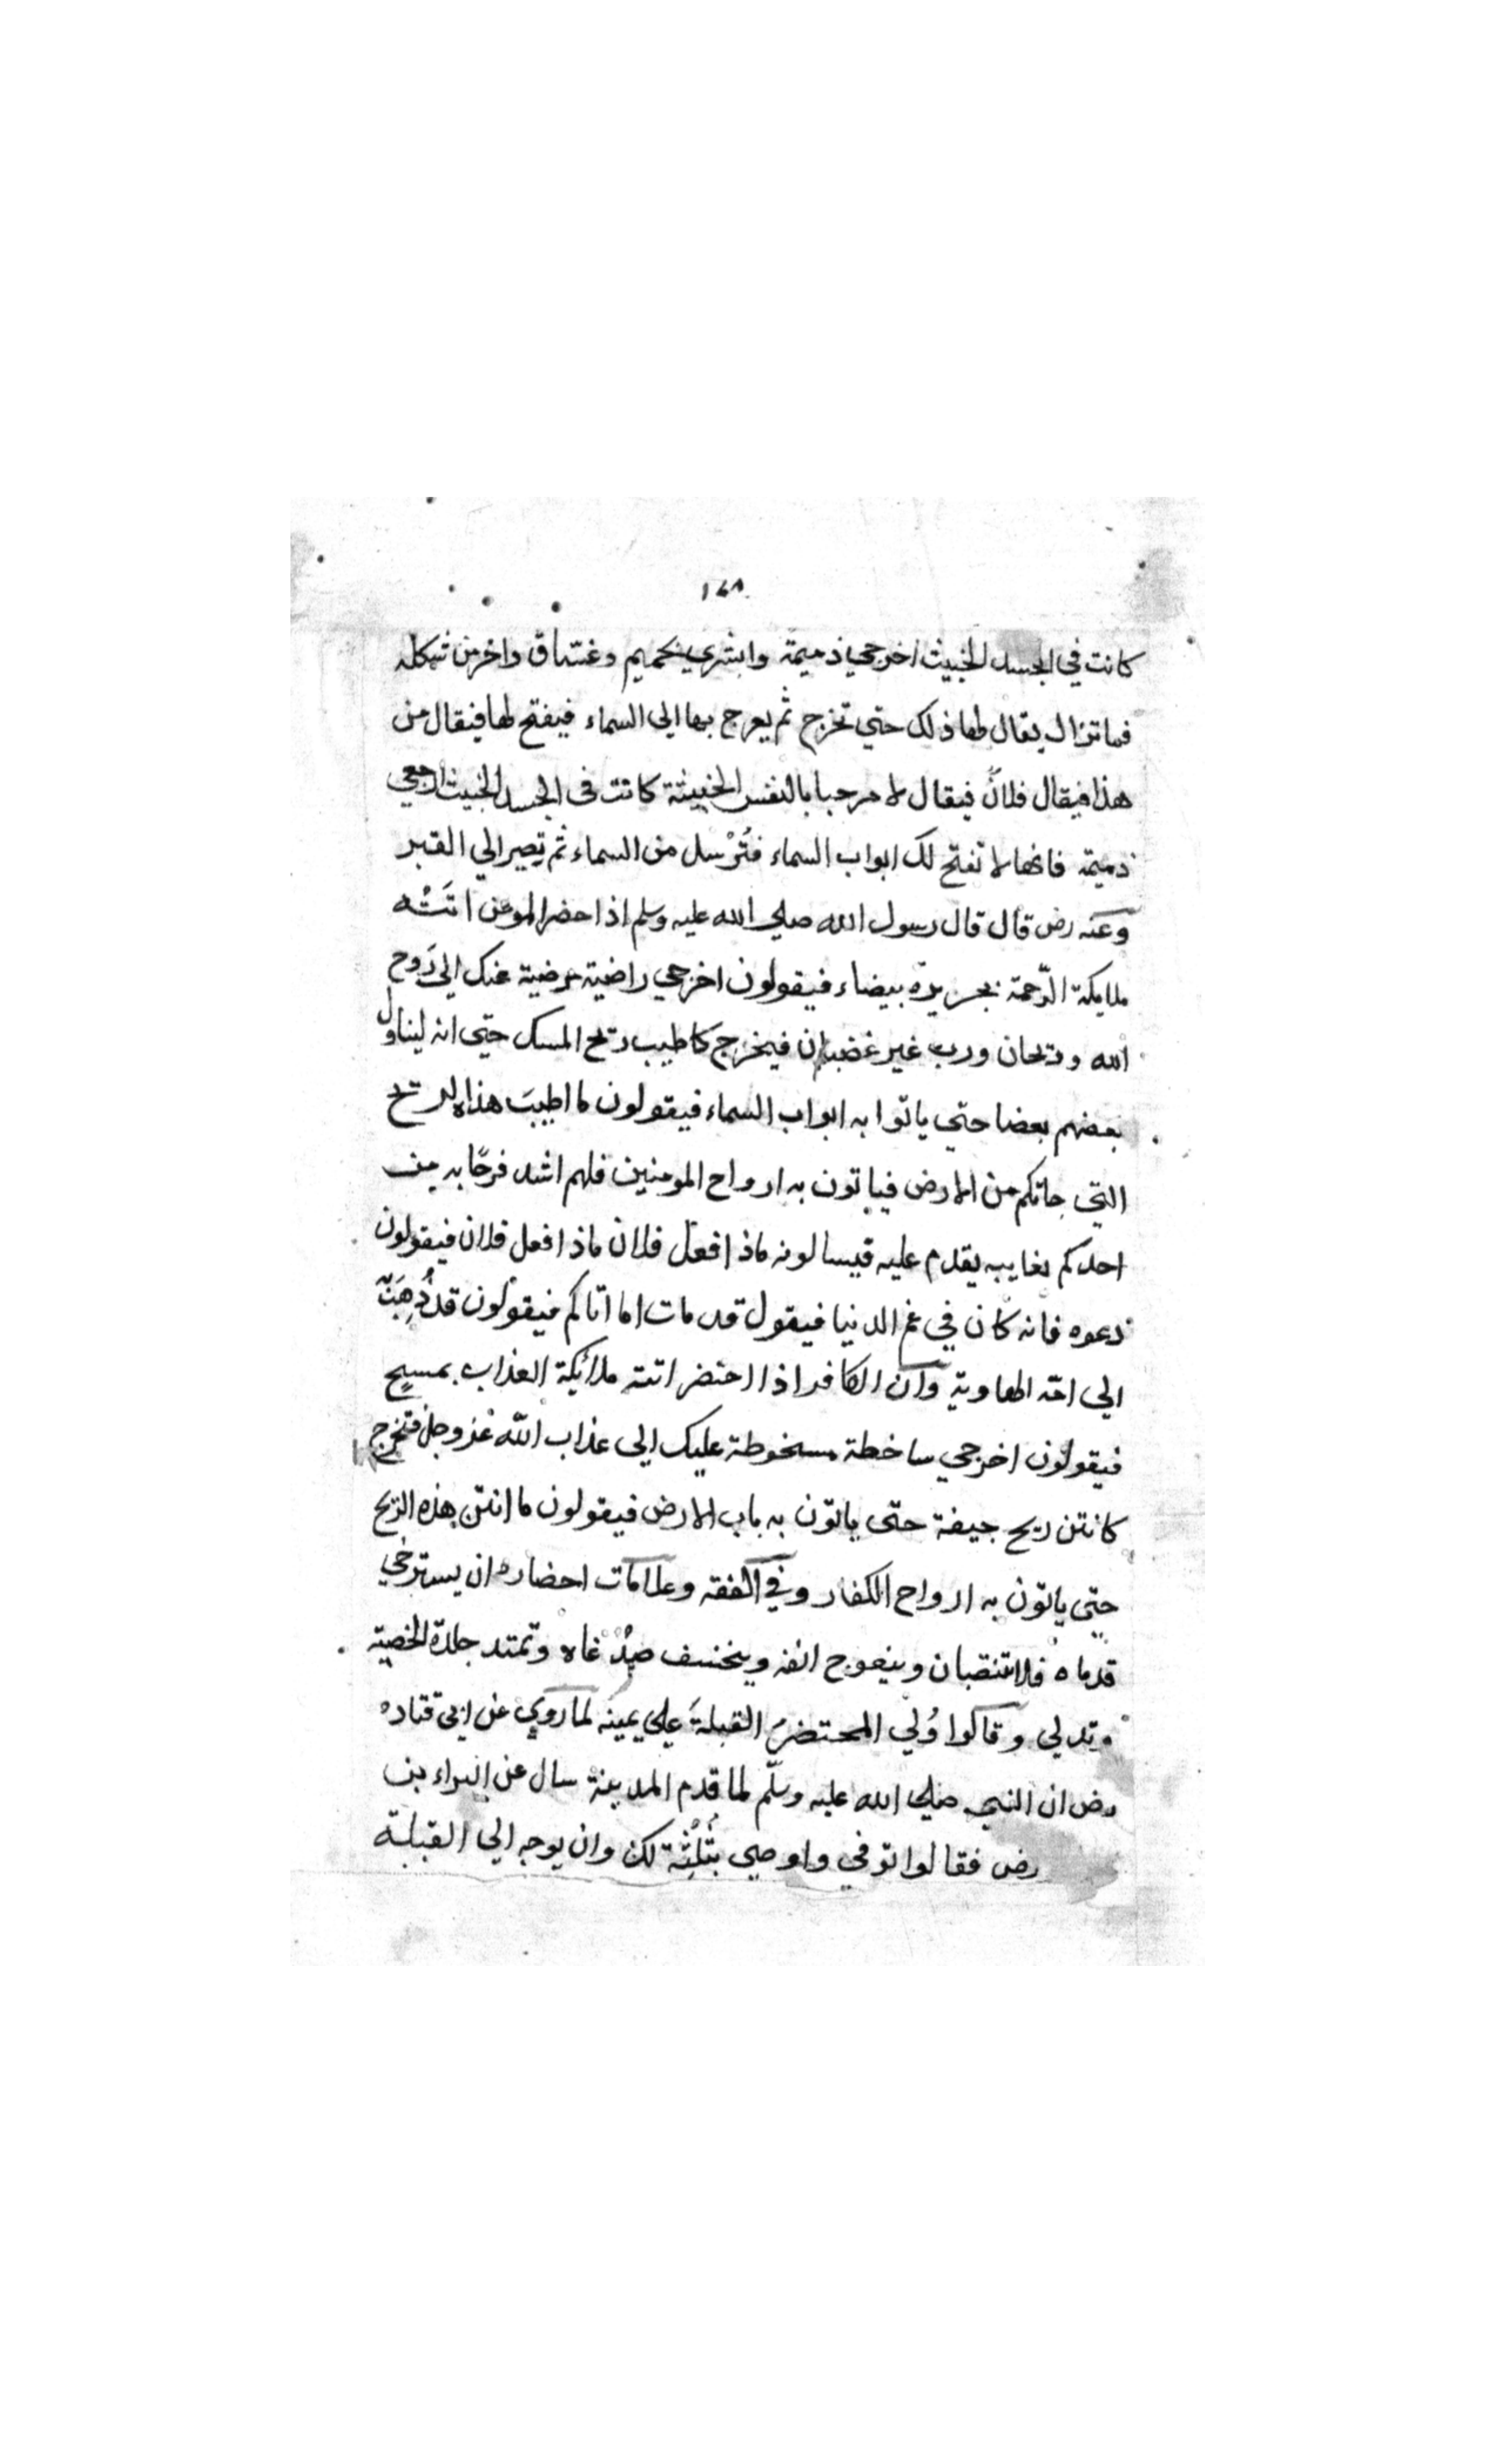 ١٤٨
كانت في الجسد الخبيث اخرجي ذميمة وابشري بحميم وغسّاق واخر من شكله
فما تزال يقال لها ذلك حتي تخرج ثم يعرج بها الي السماء فيفتح لها فيقال من
هذا فيقال فلانٌ فيقال لا مرحبا بالنفس الخبيثة كانت في الجسد الخبيث ارجعي
ذميمة فانها لا تفتح لك ابواب السماء فتُرْسل من السماء ثم تصير الي القبر
وعنه رض قال قال رسول الله صلي الله عليه وسلم اذا حضر المومن اتَتْه
ملايكة الرّحمة بحريرة بيضاء فيقولون اخرجي راضية مرضية عنك الي رَوح
الله وريحان ورب غير غضبان فيخرج كاطيب ريح المسك حتي انه ليناول
بعضهم بعضا حتي ياتوا به ابواب السماء فيقولون ما اطيبَ هذه الريح
التي جاتكم من الارض فياتون به ارواح المومنين فلهم اشد فرحًا به من
احدكم بغايبه يقدم عليه فيسالونه ماذا فعل فلان ماذا فعل فلان فيقولون
دعوه فانه كان في غم الدنيا فيقول قد مات اما اتاكم فيقولون قد ذُهِبَ
الي امّه الهاوية وان الكافر اذا احتضر اتته ملائكة العذاب بمسحٍ
فيقولون اخرجي ساخطة مسخوطة عليك الي عذاب الله عز وجل فتخرج
كانتن ريح جيفة حتى ياتون به باب الارض فيقولون ما انتن هذه الريح
حتي ياتون به ارواح الكفار وفي الفقه وعلامات احضاره ان يسترخي
قدماه فلا تنتصبان وينعوج انفه وينخسف صُدْغاه وتمتد جلدة الخصية
وتدلي وقالوا وُلي المحتضرُ القبلةَ علي يمينه لما روي عن ابي قتاده
رض ان النبي صلي الله عليه وسلّم لما قدم المدينة سال عن البراء بن
رض فقالوا توفي واوصي بثُلْثِه لك وان يوجه الي القبلة